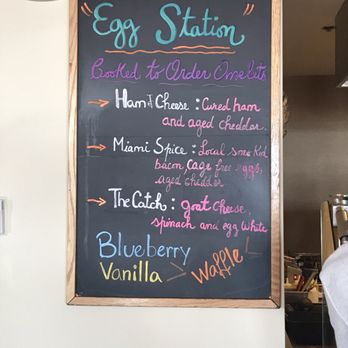 "Egg Station"
Booked to Order Omelets
→ Ham & Cheese : Cured ham
and aged cheddar.
→ Miami Spice : Local smo Kd
bacon, cage free eggs,
aged cheddar
→ The Catch : goat cheese,
spinach and egg White
Blueberry
Vanilla > Waffle